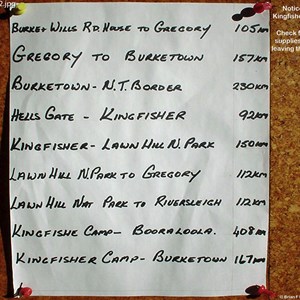 2.jpg
Notic
Kingfish
Check f
supplies
leaving th
BURKE & WILLS RD. HOUSE TO GREGORY 105KM
GREGORY TO BURKETOWN 157KM
BURKETOWN - N.T. BORDER 230KM
HELLS GATE - KINGFISHER 92KM
KINGFISHER - LAWN HILL N. PARK 150KM
LAWN HILL N. PARK TO GREGORY 112KM
LAWN HILL NAT PARK TO RIVERSLEIGH 112KM
KINGFISHE CAMP - BOORALOOLA. 408KM
KINGFISHER CAMP - BURKETOWN 167KM
© Brian F